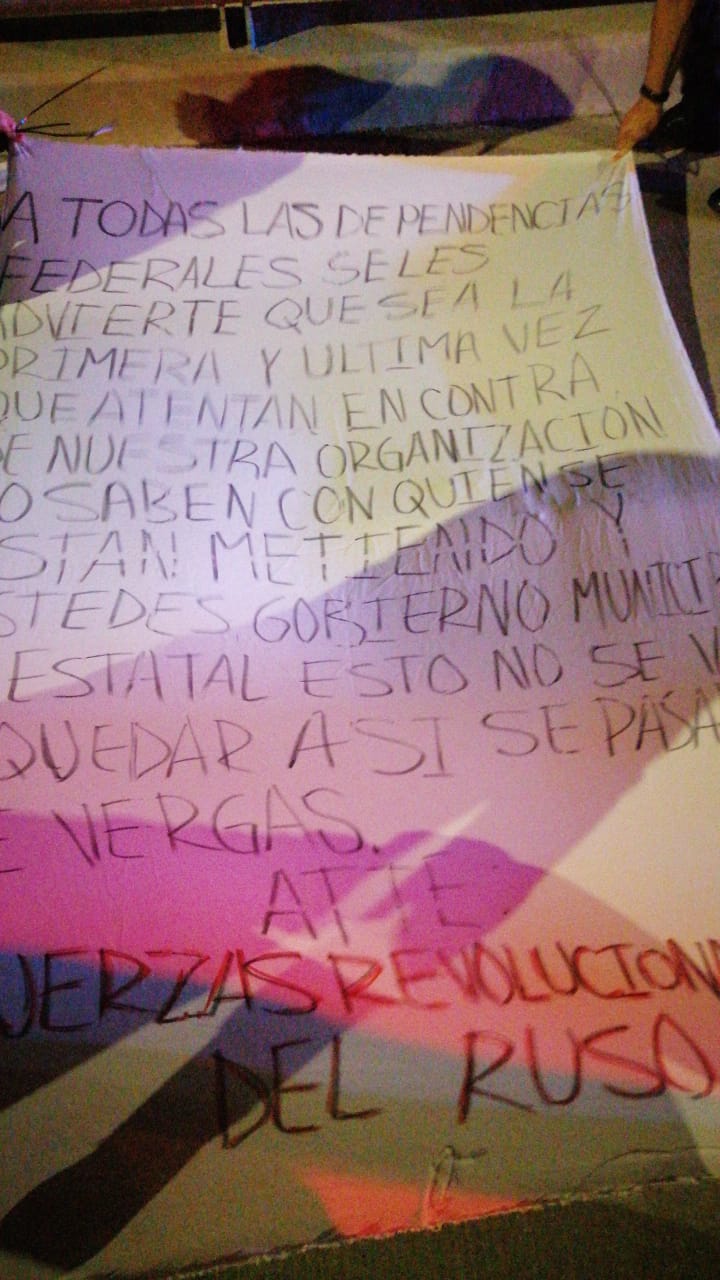 A TODAS LAS DEPENDENCIAS
FEDERALES SE LES
ADVIERTE QUE SEA LA
PRIMERA Y ULTIMA VEZ
QUE ATENTAN EN CONTRA
DE NUESTRA ORGANIZACIÓN
O SABEN CON QUIEN SE
STAN METIENDO Y
STEDES GOBIERNO MUNICI
ESTATAL ESTO NO SE V
QUEDAR ASI SE PASA
E VERGAS.
ATTE:
UERZAS REVOLUCION
DEL RUSO